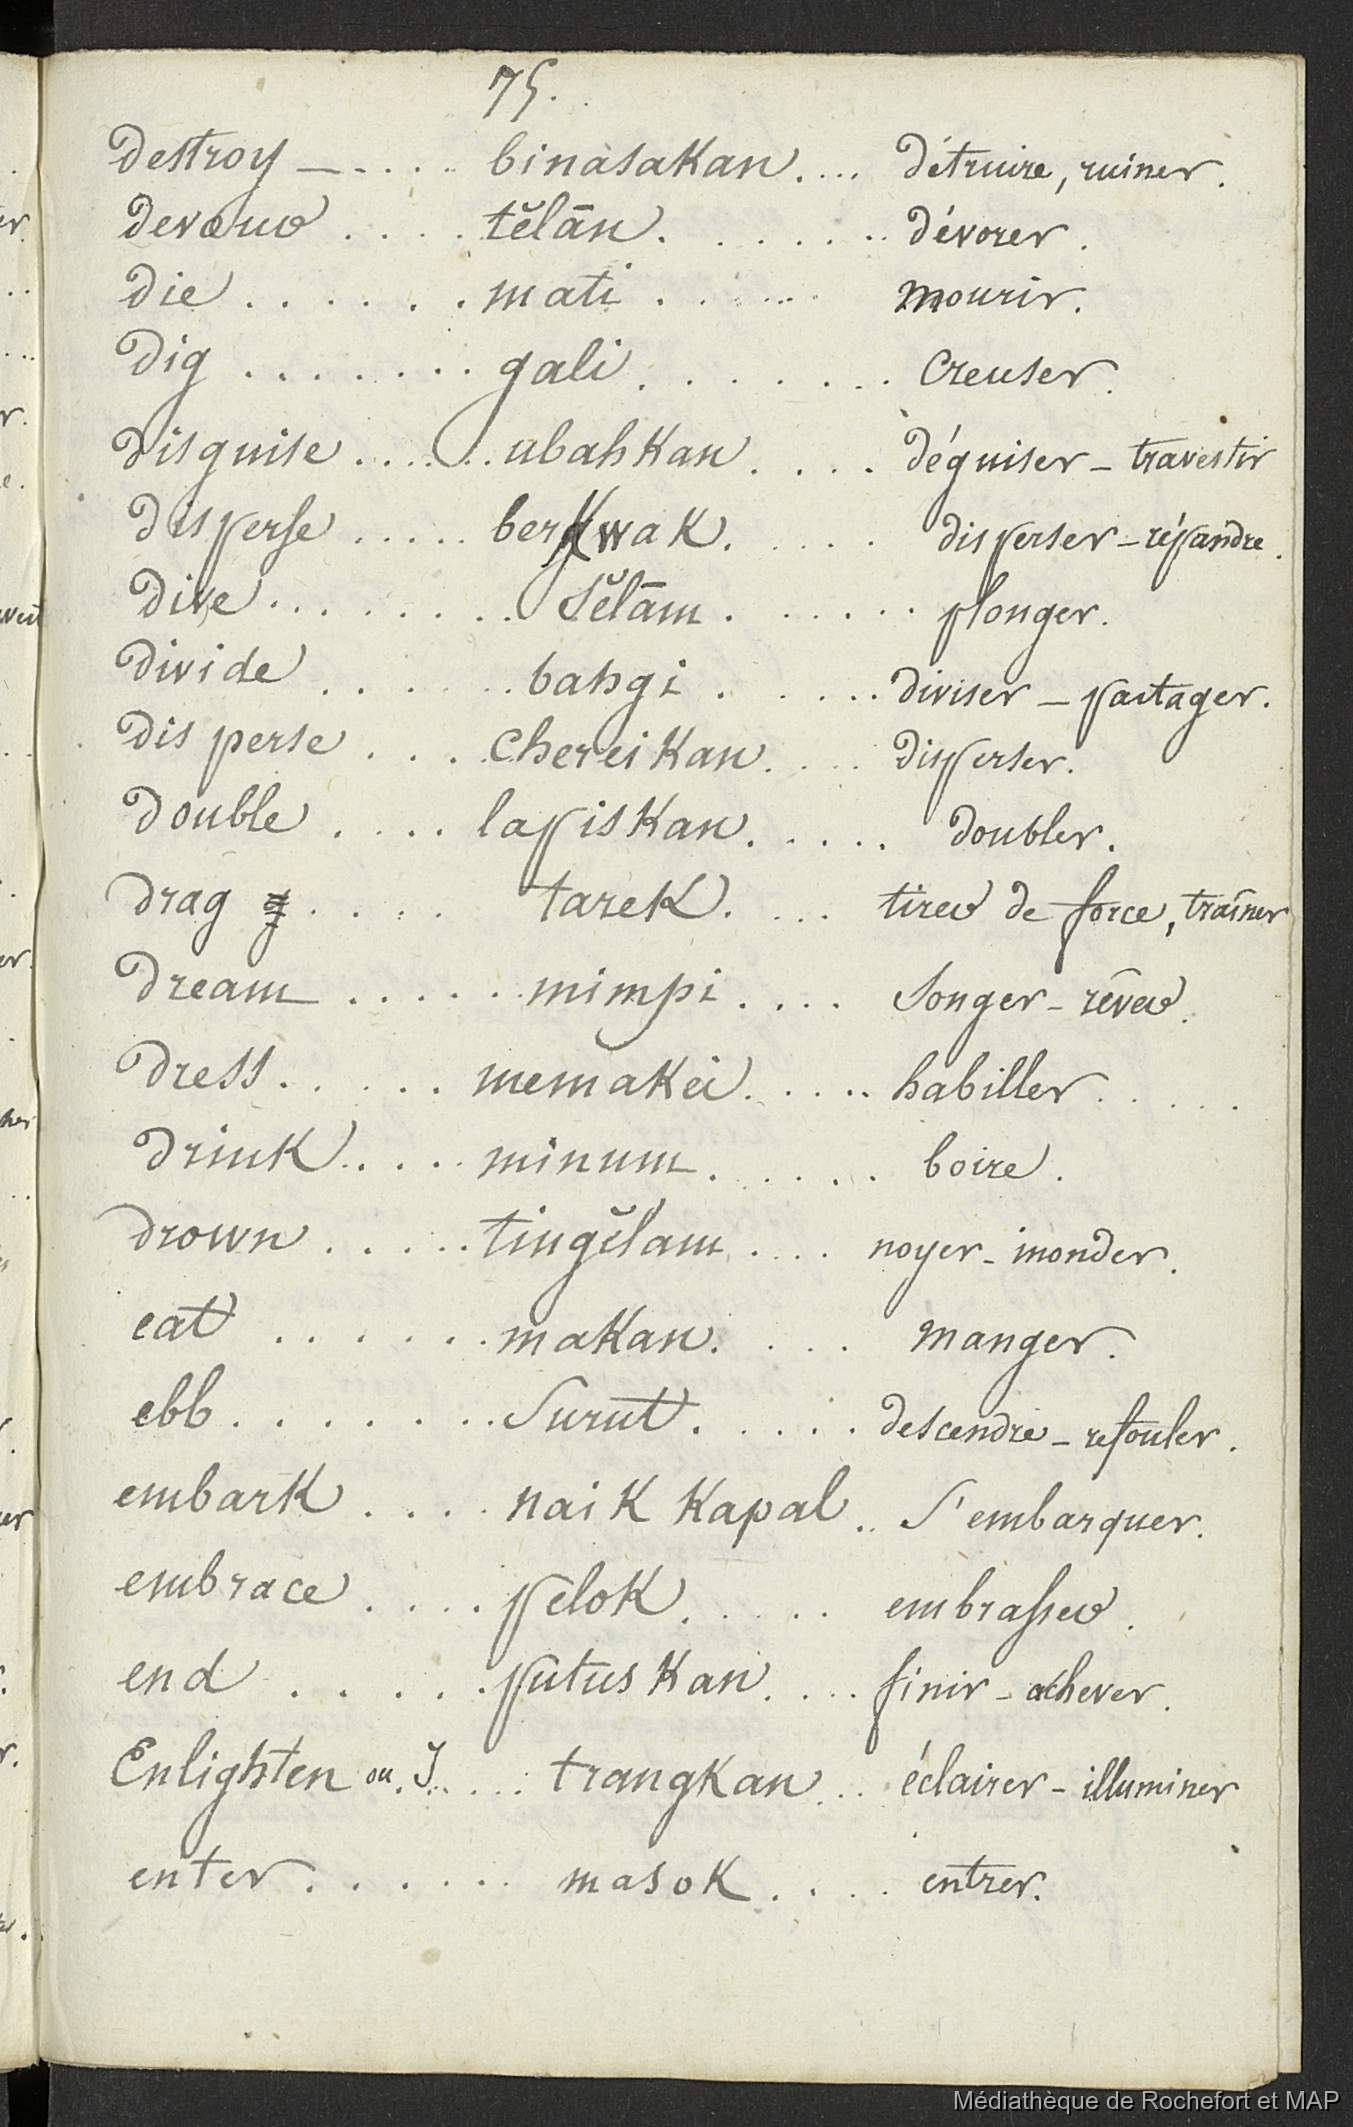 75.
Destroy - . . . . binasakan . . . Détruire, ruiner.
Devour . . . . tĕlān . . . . . . dévorer.
Die . . . . . . mati . . . . . mourir.
Dig . . . . . . . gali . . . . . . . Creuser.
Disguise . . . . . . ubahkan . . . . déguiser - travestir
Disperse . . . . . berkwak . . . . . disperser - répandre.
Dive . . . . . . . . . Sĕlām . . . . . . plonger.
Divide . . . . . . . bahgi . . . . . . diviser - partager.
Disperse . . . . chereikan . . . . Disperser.
Double . . . . lapiskan . . . . . doubler.
Drag . . . . . tarek . . . . tirer de force, traîner
Dream . . . . . . mimpi . . . . Songer - rêver.
Dress . . . . . memakei . . . . . habiller . . . . .
Drink . . . . . minum . . . . . . boire.
Drown . . . . . tingĕlam . . . . noyer - inonder.
eat . . . . . . makan . . . . manger.
ebb . . . . . . . Surut . . . . . descendre - refouler.
embark . . . . naik kapal . . S'embarquer.
embrace . . . . pelok . . . . . embrasser.
end . . . . . putuskan . . . . finir - achever.
Enlighten ou I . . . . trangkan . . . éclairer - illuminer
enter . . . . . . masok . . . . entrer.
Médiathèque de Rochefort et MAP